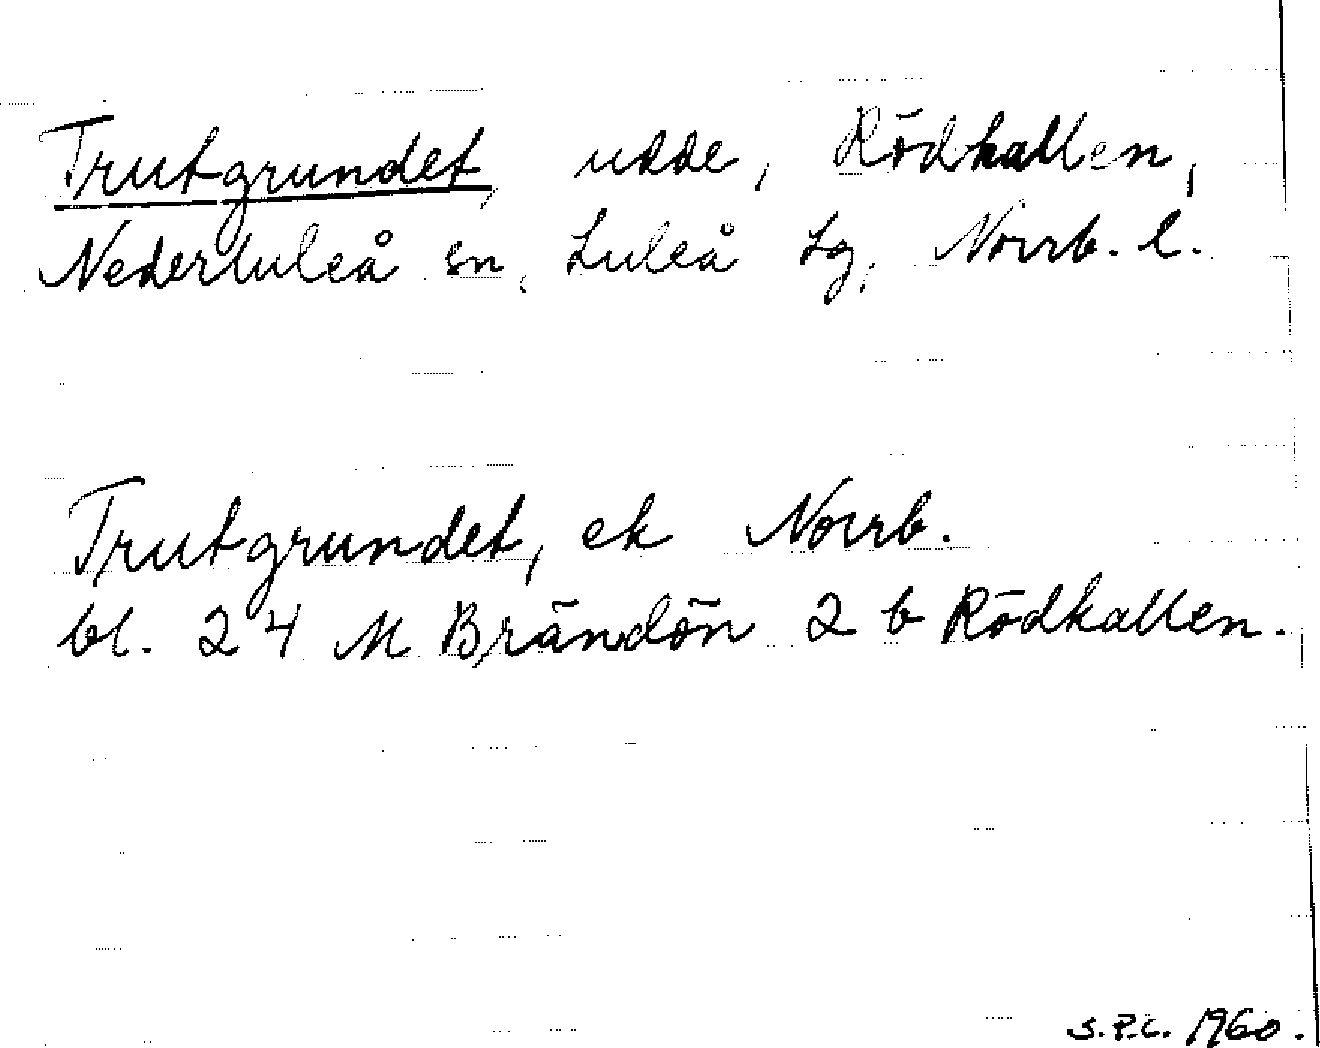 Trutgrundet, udde, Rödkallen,
Nederluleå sn, Luleå tg, Norrb. l.
Trutgrundet, ek Norrb.
bl. 24 M Brändön 2 b Rödkallen.
S.P.C. 1960.